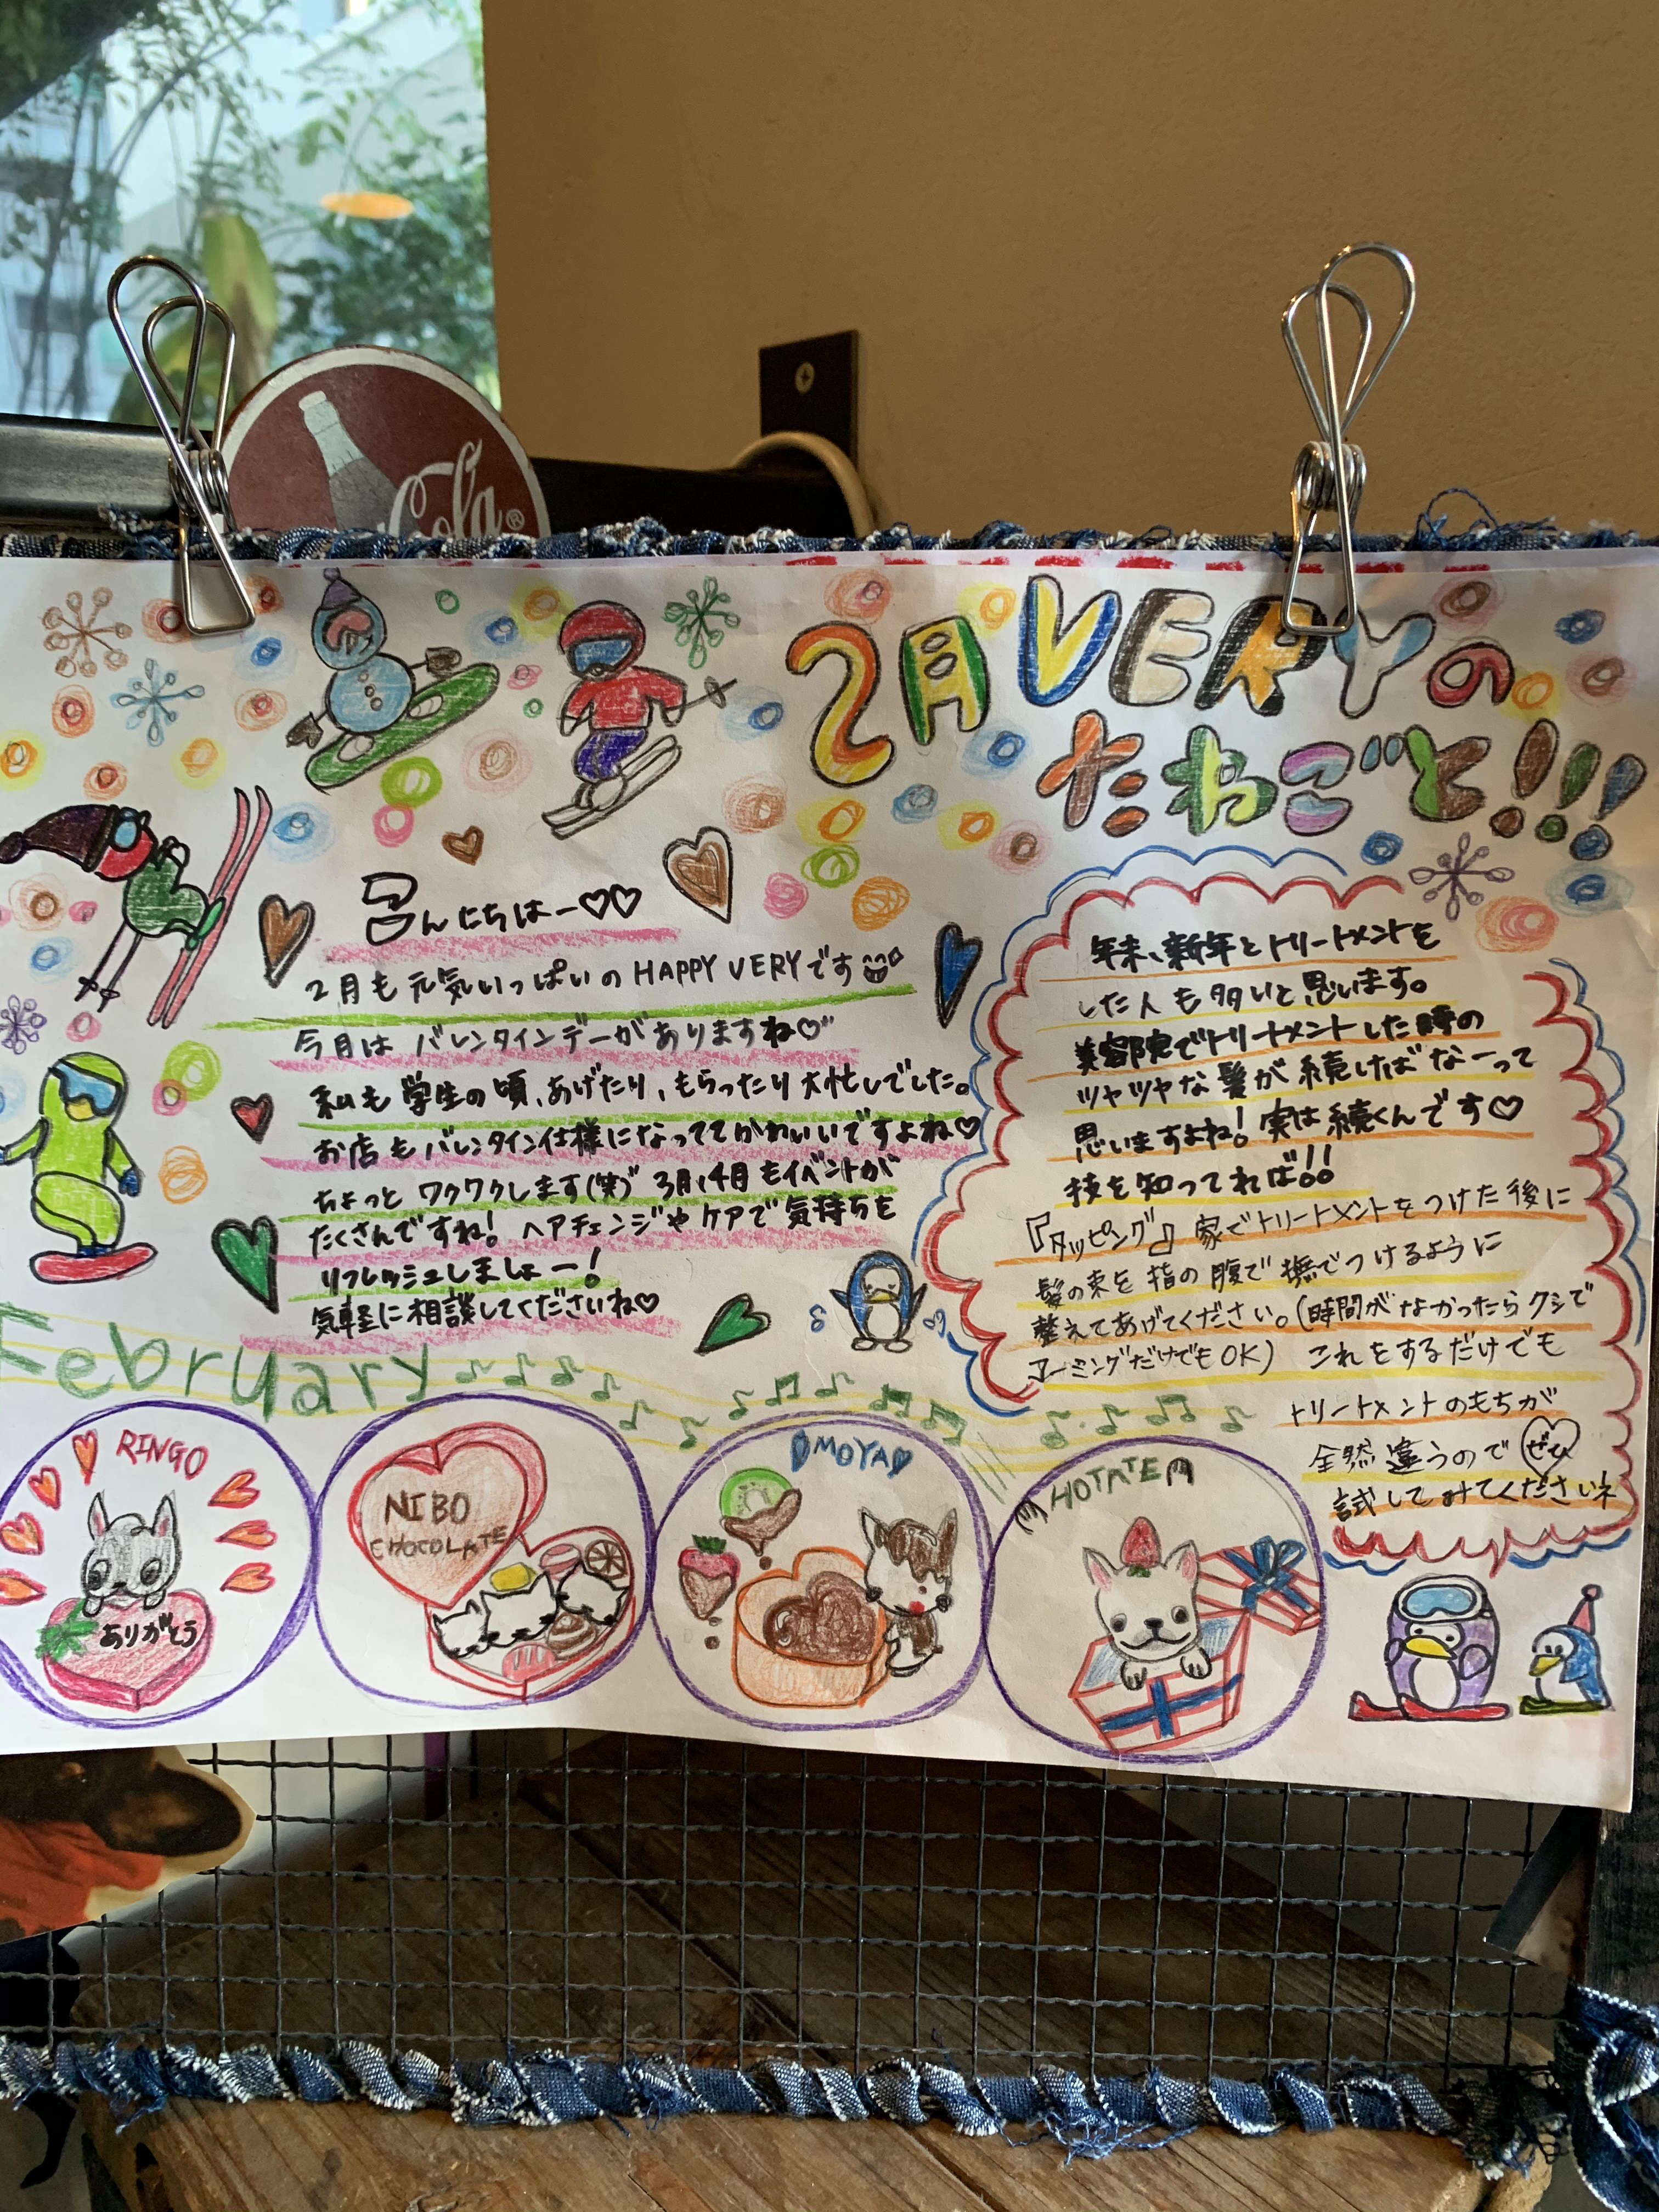 Cola®
2月VERYの
たわごと!!!
こんにちはー♡♡
2月も元気いっぱいのHAPPY VERYです
今月はバレンタインデーがありますね♡
私も学生の頃、あげたり、もらったり大忙しでした。
お店もバレンタイン仕様になっててかわいいですよね♡
ちょっとワクワクします(笑) 3月、4月もイベントが
たくさんですね! ヘアチェンジやケアで気持ちを
リフレッシュしましょー!
気軽に相談してくださいね♡
年末、新年とトリートメントを
した人も多いと思います。
美容院でトリートメントした時の
ツヤツヤな髪が続けばなーって
思いますよね! 実は続くんです♡
技を知ってれば!!
『タッピング』家でトリートメントをつけた後に
髪の束を指の腹で撫でつけるように
整えてあげてください。(時間がなかったらクシで
コーミングだけでもOK) これをするだけでも
トリートメントのもちが
全然違うのでぜひ
試してみてくださいネ
February
RINGO
ありがとう
NIBO
CHOCOLATE
MOYA
HOTATE